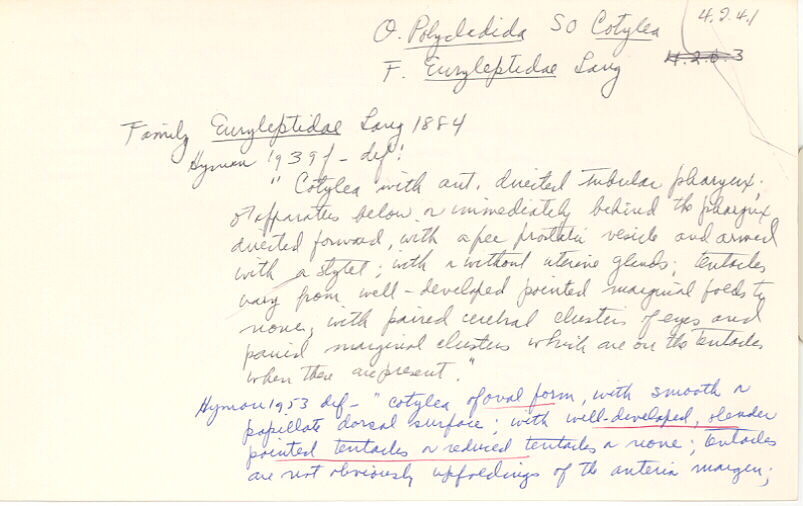 O. Polycladida SO Cotylea 4.2.41
F. Euryleptidae Lang 4.2.6.3
Family Euryleptidae Lang 1884
Hyman 1939f - def:
"Cotylea with ant. directed tubular pharynx;
♂ apparatus below or immediately behind the pharynx
directed forward, with a free prostatic vesicle and armed
with a stylet; with or without uterine glands; tentacles
vary from well-developed pointed marginal folds to
none; with paired cerebral clusters of eyes and
paired marginal clusters which are on the tentacles
when these are present."
Hyman 1953 def - "cotylea of oval form, with smooth or
papillate dorsal surface; with well-developed, slender
pointed tentacles or reduced tentacles or none; tentacles
are not obviously upfoldings of the anterior margin;